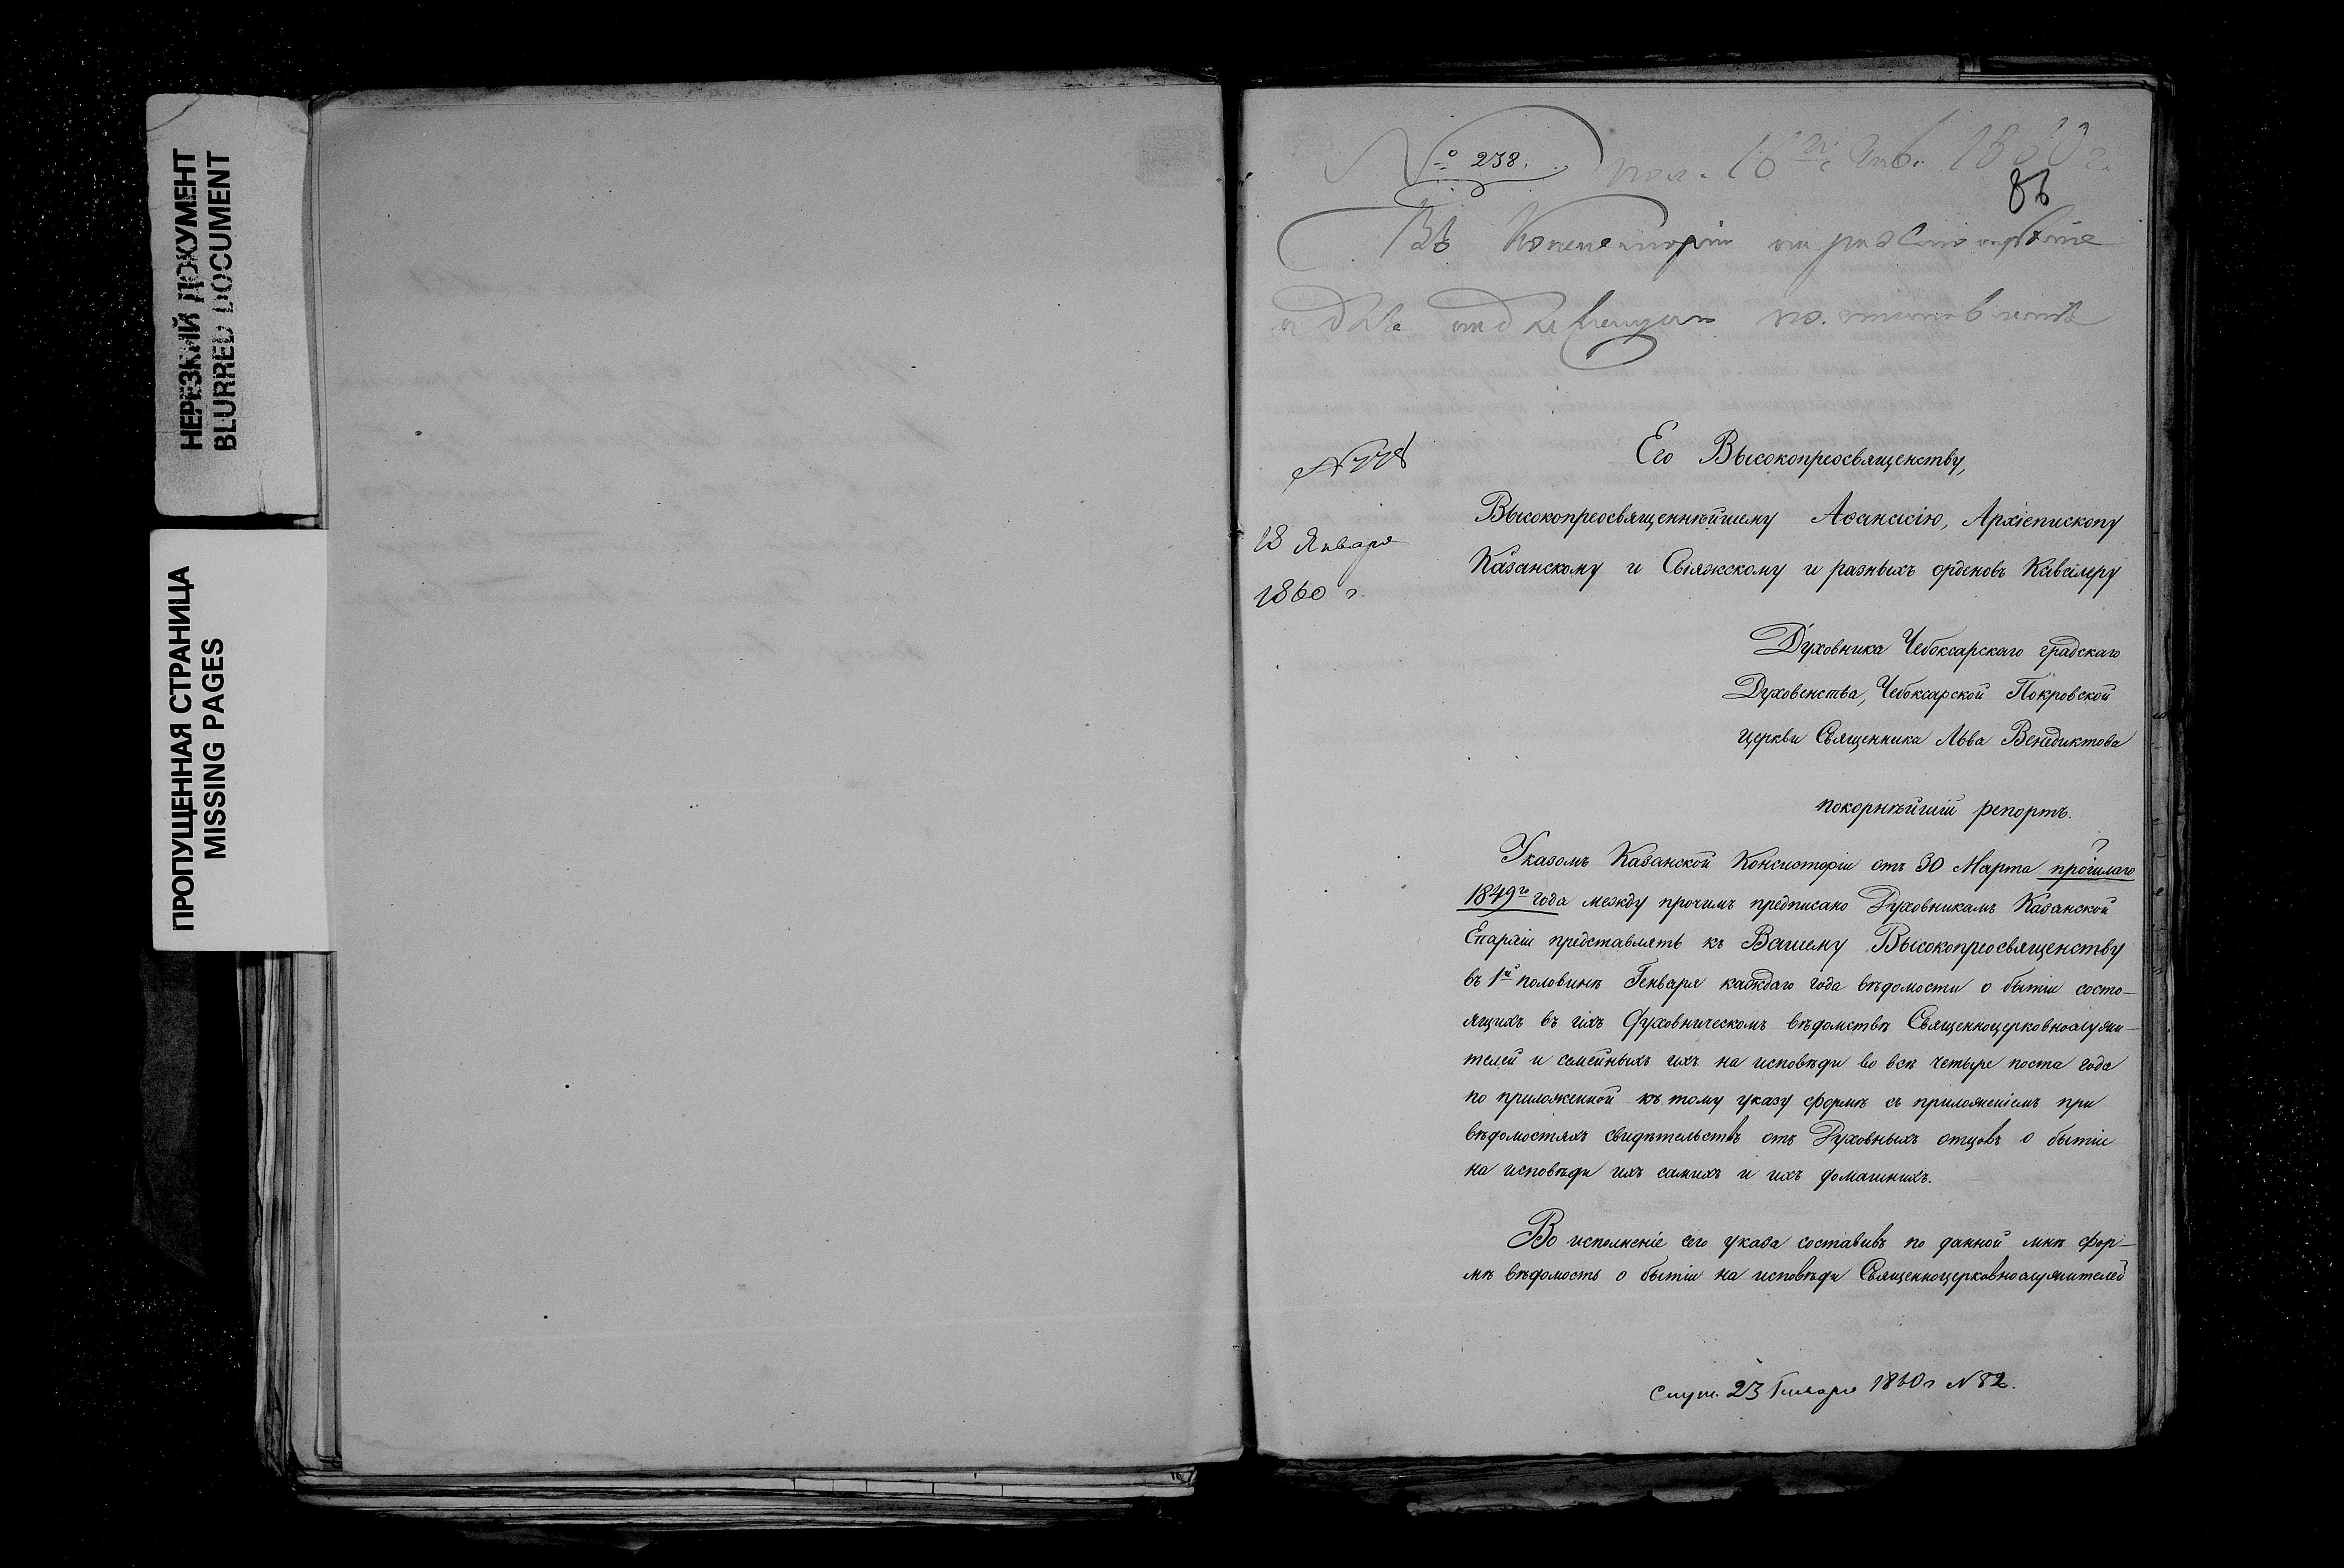 НЕРЕЗКИЙ ДОКУМЕНТ
BLURRED DOCUMENT
ПРОПУЩЕННАЯ СТРАНИЦА
MISSING PAGES
№ 238. пол. 16 Янв. 1860 г.
86
Въ Консисторію на разсмотрѣніе
18 Января
1860 г.
Его Высокопреосвященству,
Высокопреосвященнѣйшему Аѳанасію, Архіепископу
Казанскому и Свіяжскому и разныхъ орденовъ Кавалеру
Духовника Чебоксарскаго градскаго
Духовенства, Чебоксарской Покровской
церкви Священника Льва Венедиктова
покорнѣйшій репортъ.
Указомъ Казанской Консисторіи отъ 30 Марта прошлаго
1849го года между прочимъ предписано Духовникамъ Казанской
Епархіи представлять къ Вашему Высокопреосвященству
въ 1й половинѣ Генваря каждаго года вѣдомости о бытіи состо-
ящихъ въ ихъ Духовническомъ вѣдомствѣ Священноцерковнослужи-
телей и семейныхъ ихъ на исповѣди во всѣ четыре поста года
по приложенной къ тому указу формѣ съ приложеніемъ при
вѣдомостяхъ свидѣтельствъ отъ Духовныхъ отцовъ о бытіи
на исповѣди ихъ самихъ и ихъ домашнихъ.
Во исполненіе сего указа составивъ по данной мнѣ фор-
мѣ вѣдомость о бытіи на исповѣди Священноцерковнослужителей
Слуш. 23 Генваря 1860 г № 82.